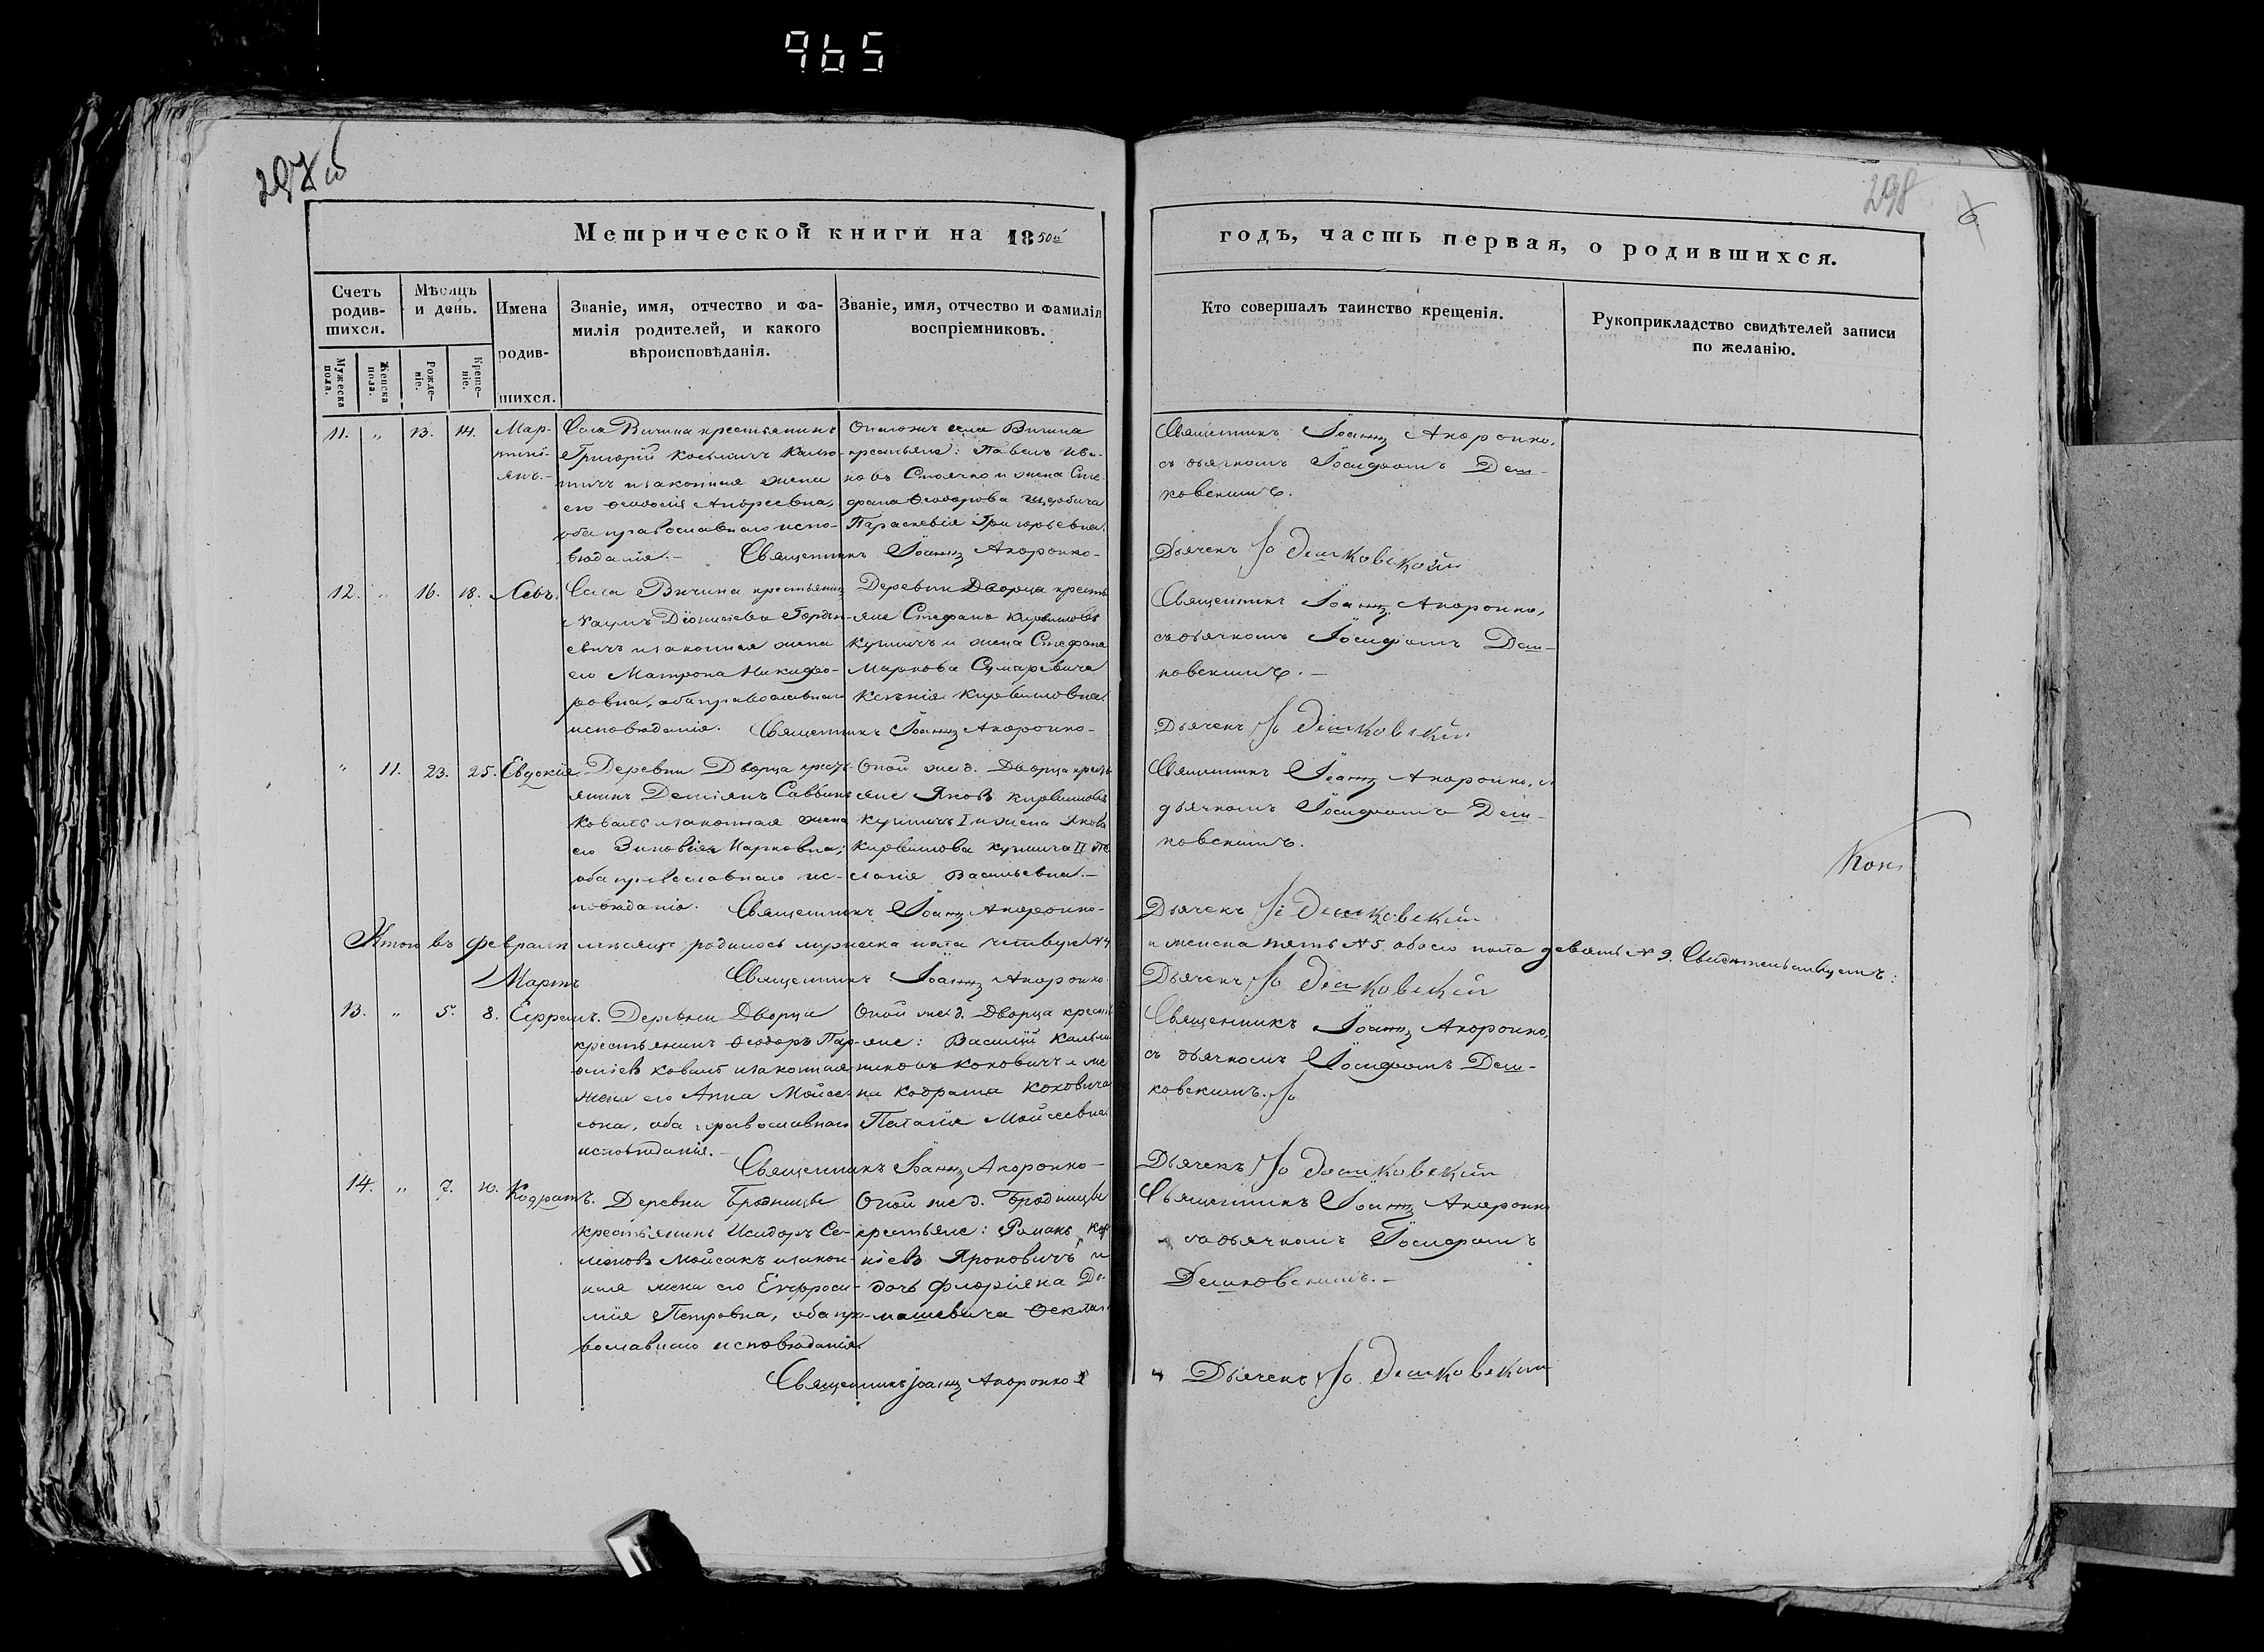 965
297 об
298
6.
Метрической книги на 1850й
годъ, часть первая, о родившихся.
Счетъ родившихся.
Мѣсяцъ и день.
Имена родившихся.
Званіе, имя, отчество и фамилія родителей, и какого вѣроисповѣданія.
Званіе, имя, отчество и фамилія воспріемниковъ.
Кто совершалъ таинство крещенія.
Рукоприкладство свидѣтелей записи по желанію.
Мужеска пола.
Женска пола.
Рожденіе.
Крещеніе.
11. „ 13. 14. Мар-
тині-
янъ.-
Села Вичина крестьянинъ
Григорій Косьмичъ
и законная жена
его Ѳеодосія Андреевна,
оба православнаго испо-
вѣданія.-
села Вичина
крестьяне: Павелъ Ива-
новъ и жена Сте-
фана Ѳеодорова
Параскевія Григорьевна.
Священникъ Іоаннъ
Священникъ Іоаннъ
съ дьячкомъ Іосифомъ Деш-
ковскимъ.
Дьячекъ Іо Дешковскій
12. „ 16. 18. Левъ.
Села Вичина крестьянинъ
Наумъ Діонисіевъ Горды-
евичъ и законная жена
его Матрона Никифо-
ровна, оба православнаго
исповѣданія.
Деревни Дворца кресть-
яне Стефанъ Кирилловъ
Купичъ и жена Стефана
Маркова
Ксенія Кирилловна.
Священникъ Іоаннъ
Священникъ Іоаннъ
съ дьячкомъ Іосифомъ Деш-
ковскимъ.-
Дьячекъ Іо Дешковскій
„ 11. 23. 25. Евдокія.
Деревни Дворца кресть-
янинъ Деміянъ Саввинъ
Коваль и законная жена
его Зиновія Марковна;
оба православнаго ис-
повѣданія.
Оной же д. Дворца кресть-
яне Яковъ Кирилловъ
Купичъ I и жена Якова
Кириллова Купича II Пе-
лагія Васильевна.-
Священникъ Іоаннъ
Священникъ Іоаннъ
дьячкомъ Іосифомъ Деш-
ковскимъ.
Дьячекъ Іо Дешковскій
Кон
Итого въ Февралѣ мѣсяцѣ родилось мужеска пола четыре №4
и женска пять №5. обоего пола девять №9. Свидѣтельствуемъ:
Мартъ
Священникъ Іоаннъ
Дьячекъ Іо Дешковскій
13. „ 5. 8. Ефремъ.
Деревни Дворца
крестьянинъ Ѳеодоръ
Коваль и законная
жена его Анна Мойсе-
евна, оба православнаго
исповѣданія.-
Оной же д. Дворца кресть-
яне: Василій
Коковичъ и же-
на Кодрата Коковича
Наталія Мойсеевна.
Священникъ Іоаннъ
Священникъ Іоаннъ
съ дьячкомъ Іосифомъ Деш-
ковскимъ.
Дьячекъ Іо Дешковскій
14. „ 7. 10. Кодратъ.
Деревни Бродницы
крестьянинъ Исидоръ Се-
меновъ Мойсакъ и закон-
ная жена его Евфроси-
нія Петровна, оба пра-
вославнаго исповѣданія
Оной же д. Бродницы
крестьяне: Романъ
Яроковичъ и
дочь Флоріяна До-
машевича Ѳекла
Священникъ Іоаннъ
Священникъ Іоаннъ
съ дьячкомъ Іосифомъ
Дешковскимъ.-
Дьячекъ Іо Дешковскій